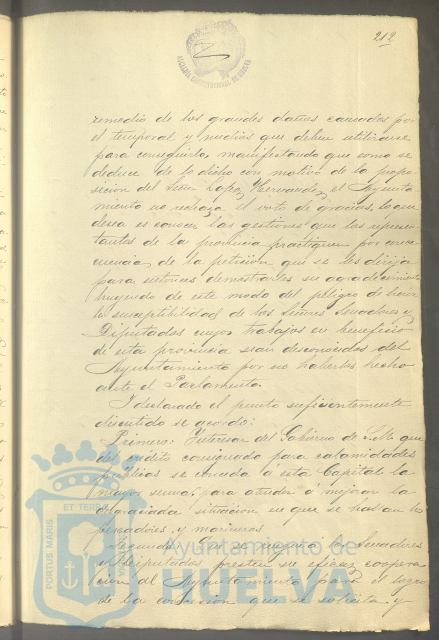 212
remedio de los grandes daños causados por
el temporal y medios que deben utilizarse
para conseguirlo, manifestando que como se
deduce de lo dicho con motivo de la propo-
sicion del Señor Lopez Hernandez, el Ayunta-
miento no rechaza el voto de gracias, lo que
desea es conocer las gestiones que los represen-
tantes de la provincia practiquen por
de la peticion que se les dirija
para entonces demostrarles su agradecimiento
huyendo de este modo del peligro de herir
la susceptibilidad de los Señores Senadores y
Diputados cuyos trabajos en beneficio
de esta provincia sean desconocidos del
Ayuntamiento por no haberlos hecho
ante el Parlamento.
I declarado el punto suficientemente
discutido se acordó:
Primero: Interesar del Gobierno de S.M. que
del crédito consignado para calamidades
públicas se conceda á esta Capital la
mayor suma, para atender ó mejorar la
desgraciada situacion en que se hallan los
pescadores y marineros
Segundo: Que se á los Senadores
y Diputados presten su eficaz coopera-
cion al Ayuntamiento para el logro
de la que se solicita, y
PORTUS MARIS ET TERRAE
Ayuntamiento de
HUELVA